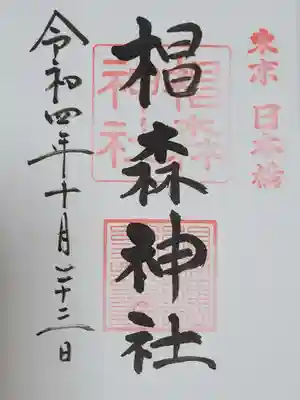 東京 日本橋
椙森神社
令和四年十月二十二日